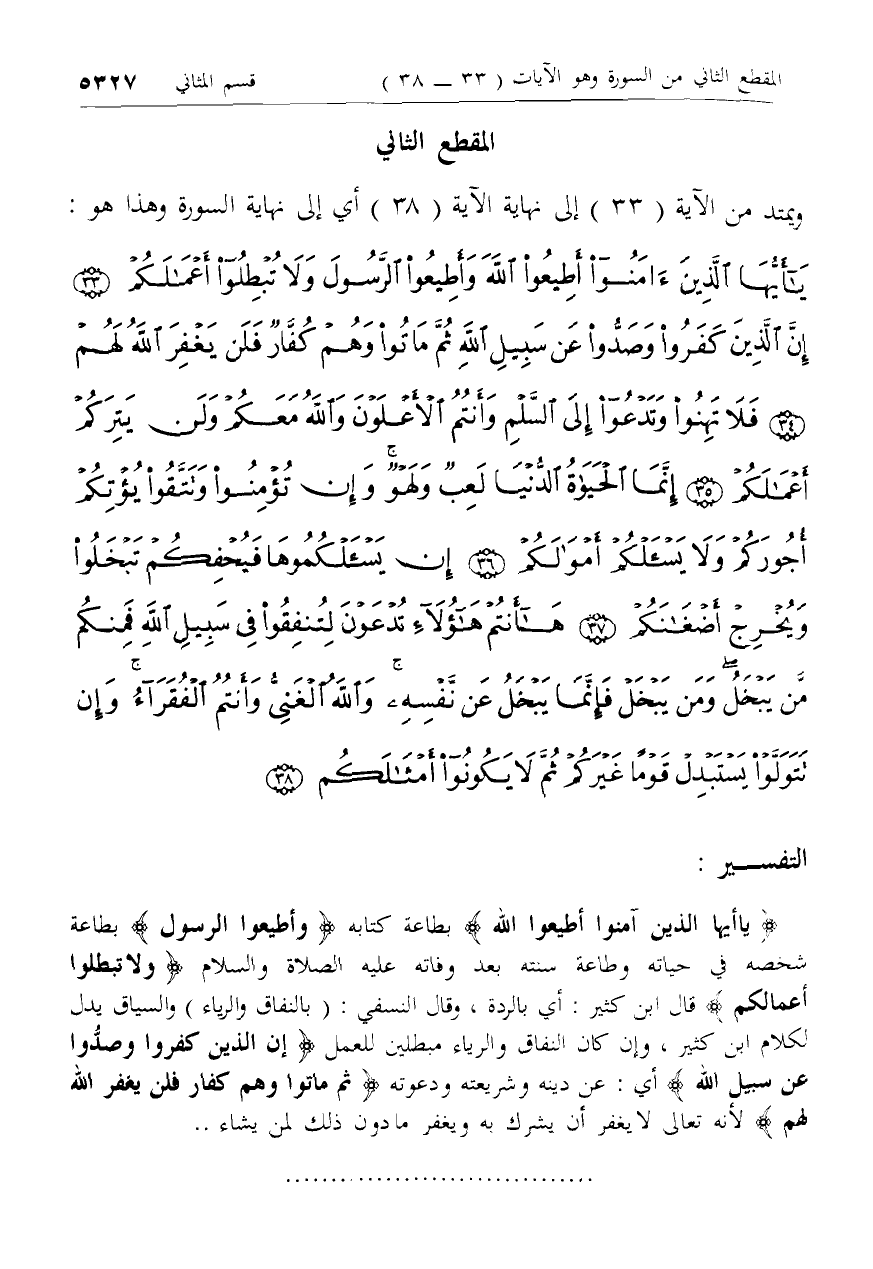 المقطع الثاني من السورة وهو الآيات ( ٣٣ ــ ٣٨ ) قسم المثاني ٥٣٢٧
المقطع الثاني
ويمتد من الآية ( ٣٣ ) إلى نهاية الآية ( ٣٨ ) أي إلى نهاية السورة وهذا هو :
يَٰٓأَيُّهَا ٱلَّذِينَ ءَامَنُوٓا۟ أَطِيعُوا۟ ٱللَّهَ وَأَطِيعُوا۟ ٱلرَّسُولَ وَلَا تُبْطِلُوٓا۟ أَعْمَٰلَكُمْ ٣٣
إِنَّ ٱلَّذِينَ كَفَرُوا۟ وَصَدُّوا۟ عَن سَبِيلِ ٱللَّهِ ثُمَّ مَاتُوا۟ وَهُمْ كُفَّارٌ فَلَن يَغْفِرَ ٱللَّهُ لَهُمْ
٣٤ فَلَا تَهِنُوا۟ وَتَدْعُوٓا۟ إِلَى ٱلسَّلْمِ وَأَنتُمُ ٱلْأَعْلَوْنَ وَٱللَّهُ مَعَكُمْ وَلَن يَتِرَكُمْ
أَعْمَٰلَكُمْ ٣٥ إِنَّمَا ٱلْحَيَوٰةُ ٱلدُّنْيَا لَعِبٌ وَلَهْوٌ ۚ وَإِن تُؤْمِنُوا۟ وَتَتَّقُوا۟ يُؤْتِكُمْ
أُجُورَكُمْ وَلَا يَسْـَٔلْكُمْ أَمْوَٰلَكُمْ ٣٦ إِن يَسْـَٔلْكُمُوهَا فَيُحْفِكُمْ تَبْخَلُوا۟
وَيُخْرِجْ أَضْغَٰنَكُمْ ٣٧ هَٰٓأَنتُمْ هَٰٓؤُلَآءِ تُدْعَوْنَ لِتُنفِقُوا۟ فِى سَبِيلِ ٱللَّهِ فَمِنكُم
مَّن يَبْخَلُ ۖ وَمَن يَبْخَلْ فَإِنَّمَا يَبْخَلُ عَن نَّفْسِهِۦ ۚ وَٱللَّهُ ٱلْغَنِىُّ وَأَنتُمُ ٱلْفُقَرَآءُ ۚ وَإِن
تَتَوَلَّوْا۟ يَسْتَبْدِلْ قَوْمًا غَيْرَكُمْ ثُمَّ لَا يَكُونُوٓا۟ أَمْثَٰلَكُم ٣٨
التفســير :
﴿ ياأيها الذين آمنوا أطيعوا الله ﴾ بطاعة كتابه ﴿ وأطيعوا الرسول ﴾ بطاعة
شخصه في حياته وطاعة سنته بعد وفاته عليه الصلاة والسلام ﴿ ولاتبطلوا
أعمالكم ﴾ قال ابن كثير : أي بالردة ، وقال النسفي : ( بالنفاق والرياء ) والسياق يدل
لكلام ابن كثير ، وإن كان النفاق والرياء مبطلين للعمل ﴿ إن الذين كفروا وصدُّوا
عن سبيل الله ﴾ أي : عن دينه وشريعته ودعوته ﴿ ثم ماتوا وهم كفار فلن يغفر الله
لهم ﴾ لأنه تعالى لايغفر أن يشرك به ويغفر مادون ذلك لمن يشاء ..
..................................